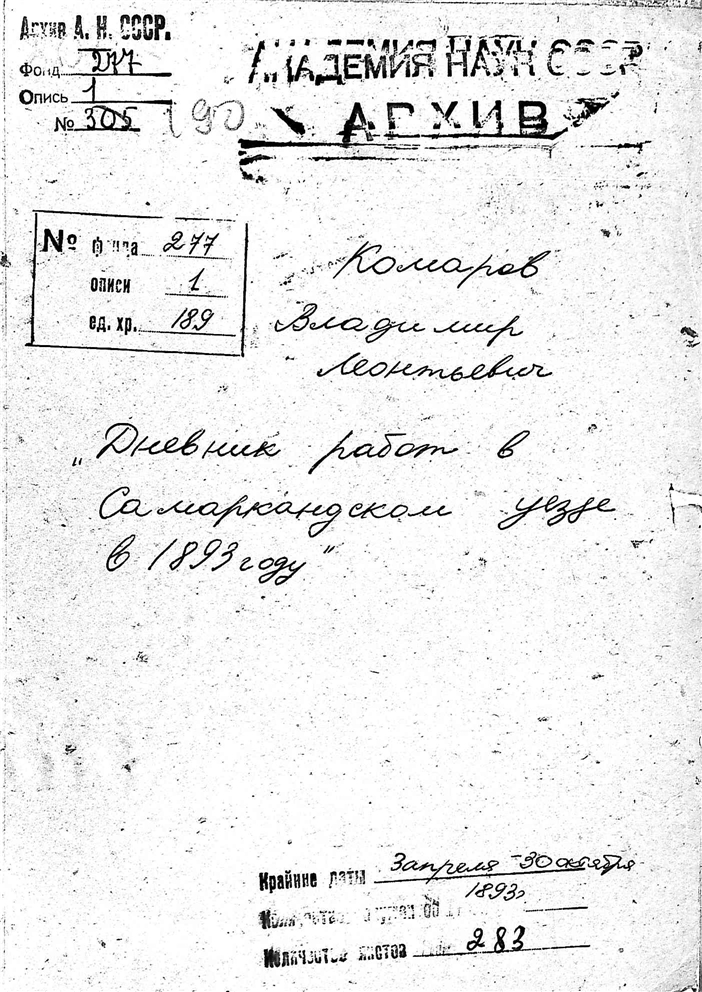 Архив А. Н. СССР.
Фонд 277
Опись 1
№ 305
190
АКАДЕМИЯ НАУК СССР
АРХИВ
№ фонда 277
описи 1
ед. хр. 189
Комаров
Владимир
Леонтьевич
„Дневник работ в
Самаркандском уезде
в 1893 году"
Крайние даты 3 апреля - 30 октября
1893г
Количество
Количество листов 283